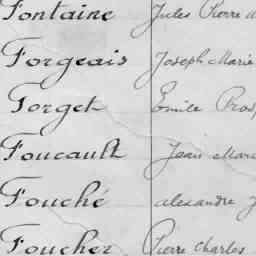 Fontaine Jules Pierre
Forgeais Joseph Marie
Forget Emile
Foucault Jean
Fouché alexandre
Foucher Pierre Charles